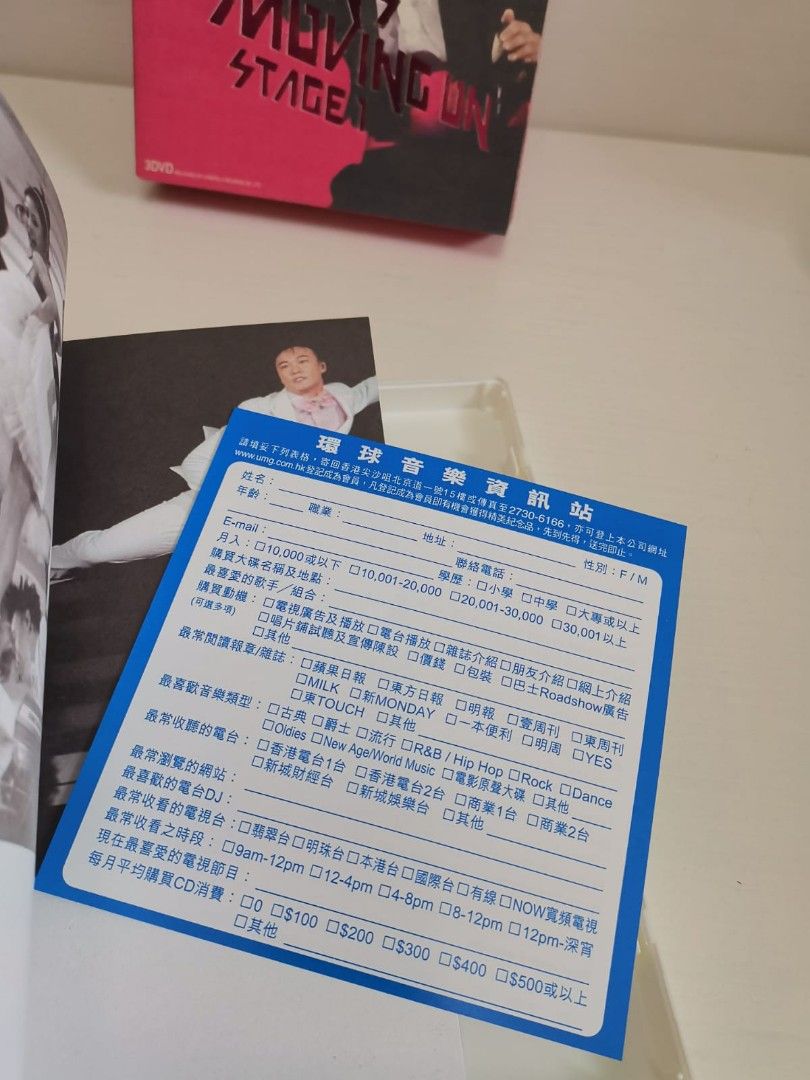 MOVING ON
STAGE 1
3DVD
環球音樂資訊站
請填妥下列表格，寄回香港尖沙咀北京道一號15樓或傳真至2730-6166，亦可登上本公司網址
www.umg.com.hk登記成為會員，凡登記成為會員即有機會獲得精美紀念品，先到先得，送完即止。
姓名： 性別：F / M
年齡： 職業： 地址：
E-mail： 聯絡電話：
月入：□10,000或以下 □10,001-20,000 □20,001-30,000 □30,001以上
學歷：□小學 □中學 □大專或以上
購買大碟名稱及地點：
最喜愛的歌手／組合：
購買動機：□電視廣告及播放□電台播放□雜誌介紹□朋友介紹□網上介紹
(可選多項) □唱片鋪試聽及宣傳陳設 □價錢 □包裝 □巴士Roadshow廣告
□其他
最常閱讀報章/雜誌：□蘋果日報 □東方日報 □明報 □壹周刊 □東周刊
□MILK □新MONDAY □一本便利 □明周 □YES
□東TOUCH □其他
最喜歡音樂類型：□古典 □爵士 □流行 □R&B / Hip Hop □Rock □Dance
□Oldies □New Age/World Music □電影原聲大碟 □其他
最常收聽的電台：□香港電台1台 □香港電台2台 □商業1台 □商業2台
□新城財經台 □新城娛樂台 □其他
最常瀏覽的網站：
最喜歡的電台DJ：
最常收看的電視台：□翡翠台□明珠台□本港台□國際台□有線□NOW寬頻電視
最常收看之時段：□9am-12pm □12-4pm □4-8pm □8-12pm □12pm-深宵
現在最喜愛的電視節目：
每月平均購買CD消費：□0 □$100 □$200 □$300 □$400 □$500或以上
□其他